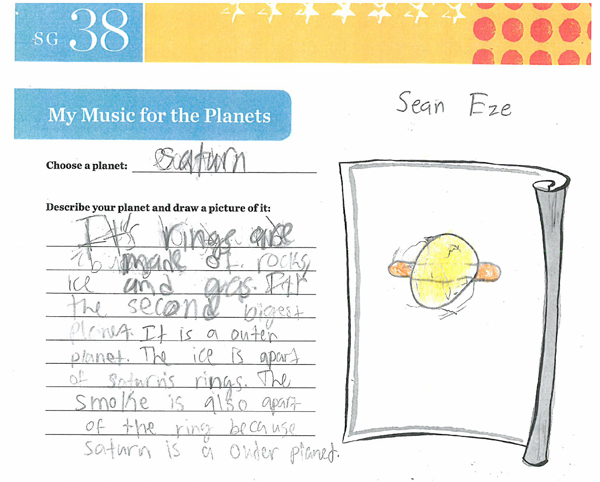 SG 38
My Music for the Planets
Sean Eze
Choose a planet: Saturn
Describe your planet and draw a picture of it:
It's rings are
made of rocks,
ice and gas. It
the second bigest
planet. It is a outer
planet. The ice is apart
of saturns rings. The
smoke is also apart
of the ring because
saturn is a outer planet.